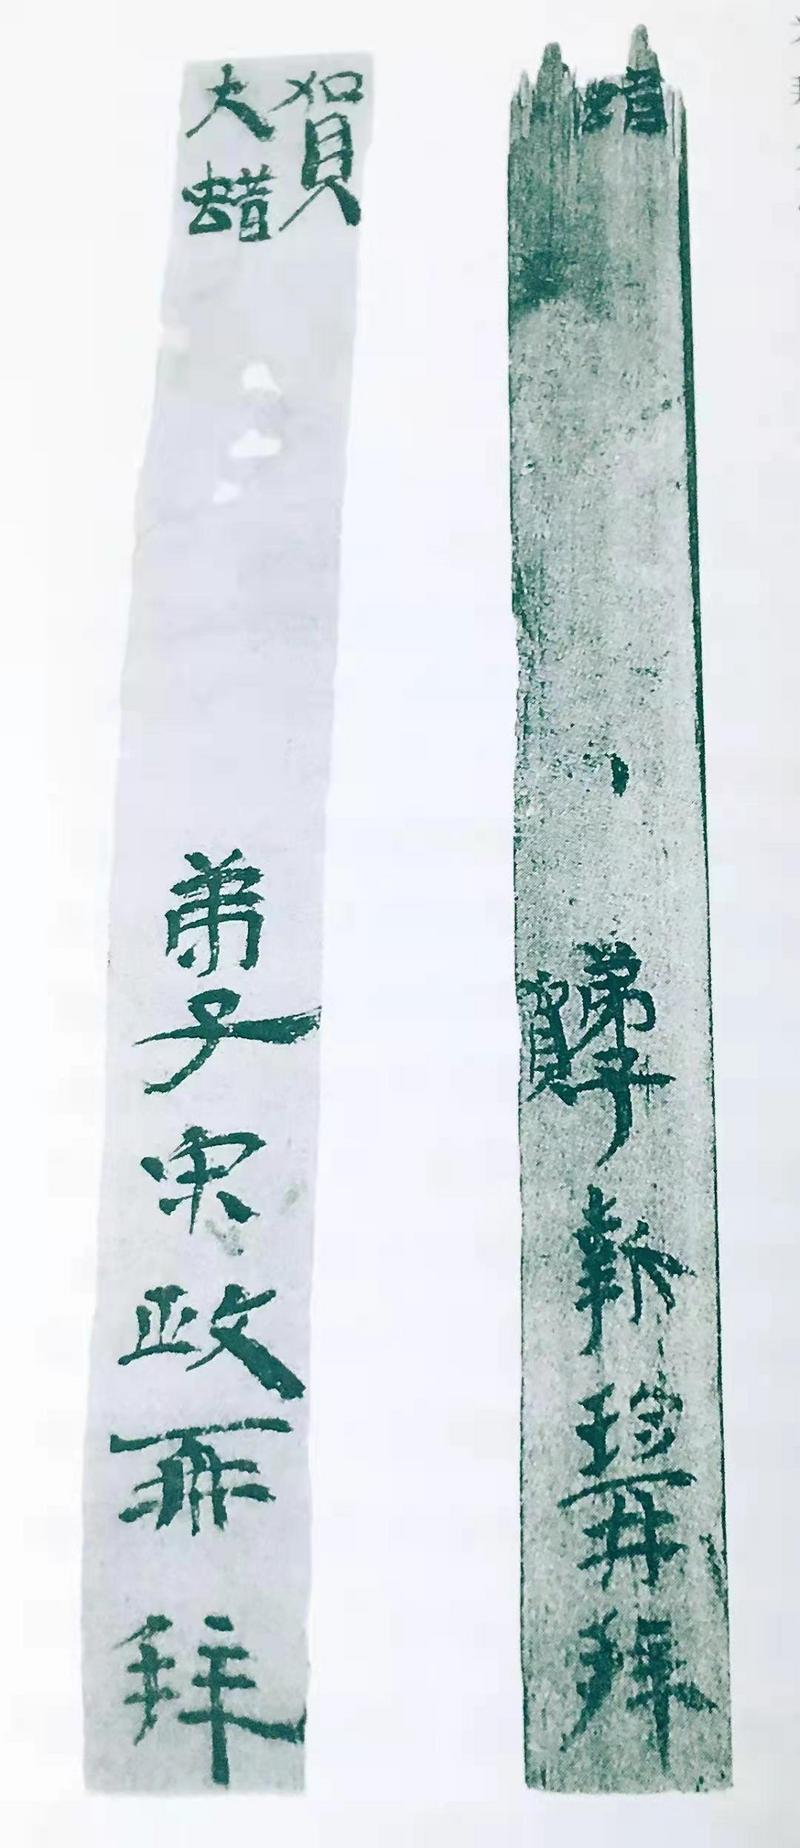 蜡
弟子靳珍再拜
賀
賀
大蜡
弟子宋政再拜